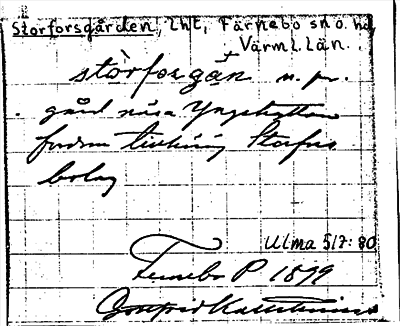 Storforsgården, Lht, Färnebo sn o. hd,
Värml. län.
stòrforgạn n. pr.
gård nära Yngshyttan
fordom tillhörig Storfors
bolag
Ulma 517: 80
Fernebo P 1899
Gottfrid Kallstenius